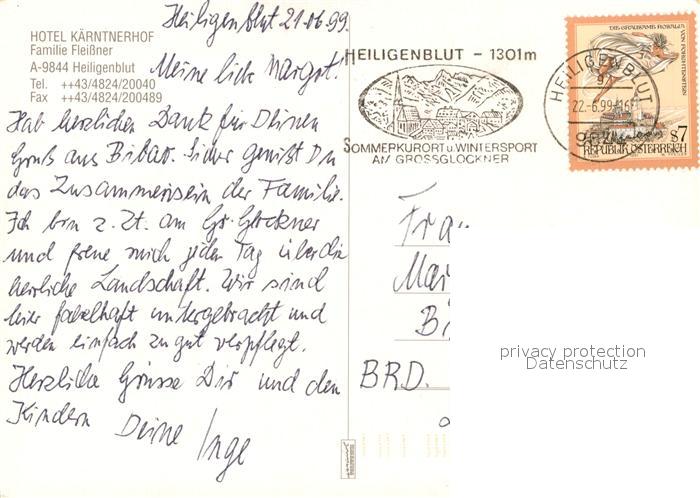 Heiligenblut 21.06.99.
HOTEL KÄRNTNERHOF
Familie Fleißner
A-9844 Heiligenblut
Tel. ++43/4824/20040
Fax ++43/4824/200489
Meine lieb Margot.
Hab herzlichen Dank für Deinen
Gruß aus Bibao. Sicher genißt Du
das Zusammensein der Familie.
Ich bin z. Zt. am Gr. Glockner
und freue mich jeden Tag über die
herrliche Landschaft. Wir sind
hier fabelhaft untergebracht und
werden einfach zu gut verpflegt.
Herzliche Grüsse Dir und den
Kindern Deine Inge
HEILIGENBLUT - 1301m
SOMMERKURORT u. WINTERSPORT
AM GROSSGLOCKNER
HEILIGENBLUT
22.-6.99-16
DIE GRAUSAME ROSALIA
VON FORCHTENSTEIN
S7
REPUBLIK ÖSTERREICH
Fra
Mar
Bi
BRD.
privacy protection
Datenschutz